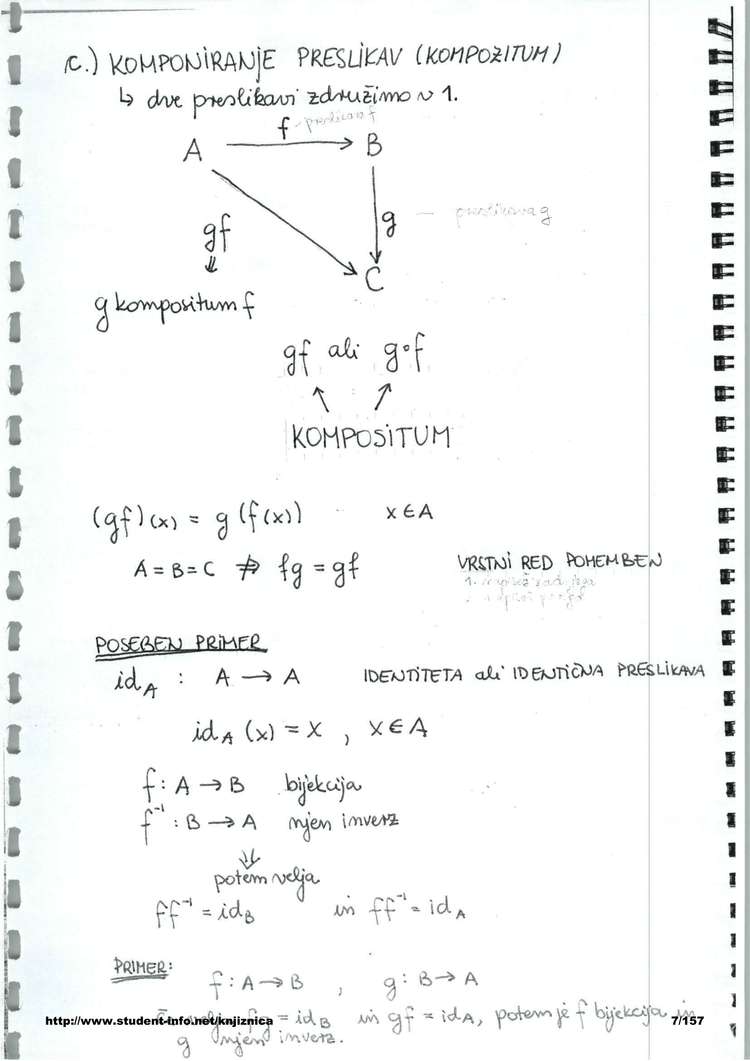 c.) KOMPONIRANJE PRESLIKAV (KOMPOZITUM)
↳ dve preslikavi združimo v 1.
f - preslikava f
A → B
g — preslikava g
gf
⇓
C
g kompositum f
gf ali g∘f
KOMPOSITUM
(gf)(x) = g(f(x)) x ∈ A
A = B = C ⇏ fg = gf VRSTNI RED POMEMBEN
POSEBEN PRIMER
id_A : A → A IDENTITETA ali IDENTIČNA PRESLIKAVA
id_A (x) = x , x ∈ A
f : A → B bijekcija
f⁻¹ : B → A njen inverz
⇓
potem velja
ff⁻¹ = id_B in ff⁻¹ = id_A
PRIMER:
f : A → B , g : B → A
= id_B in gf = id_A, potem je f bijekcija in
http://www.student-info.net/knjiznica 7/157
g njen inverz.